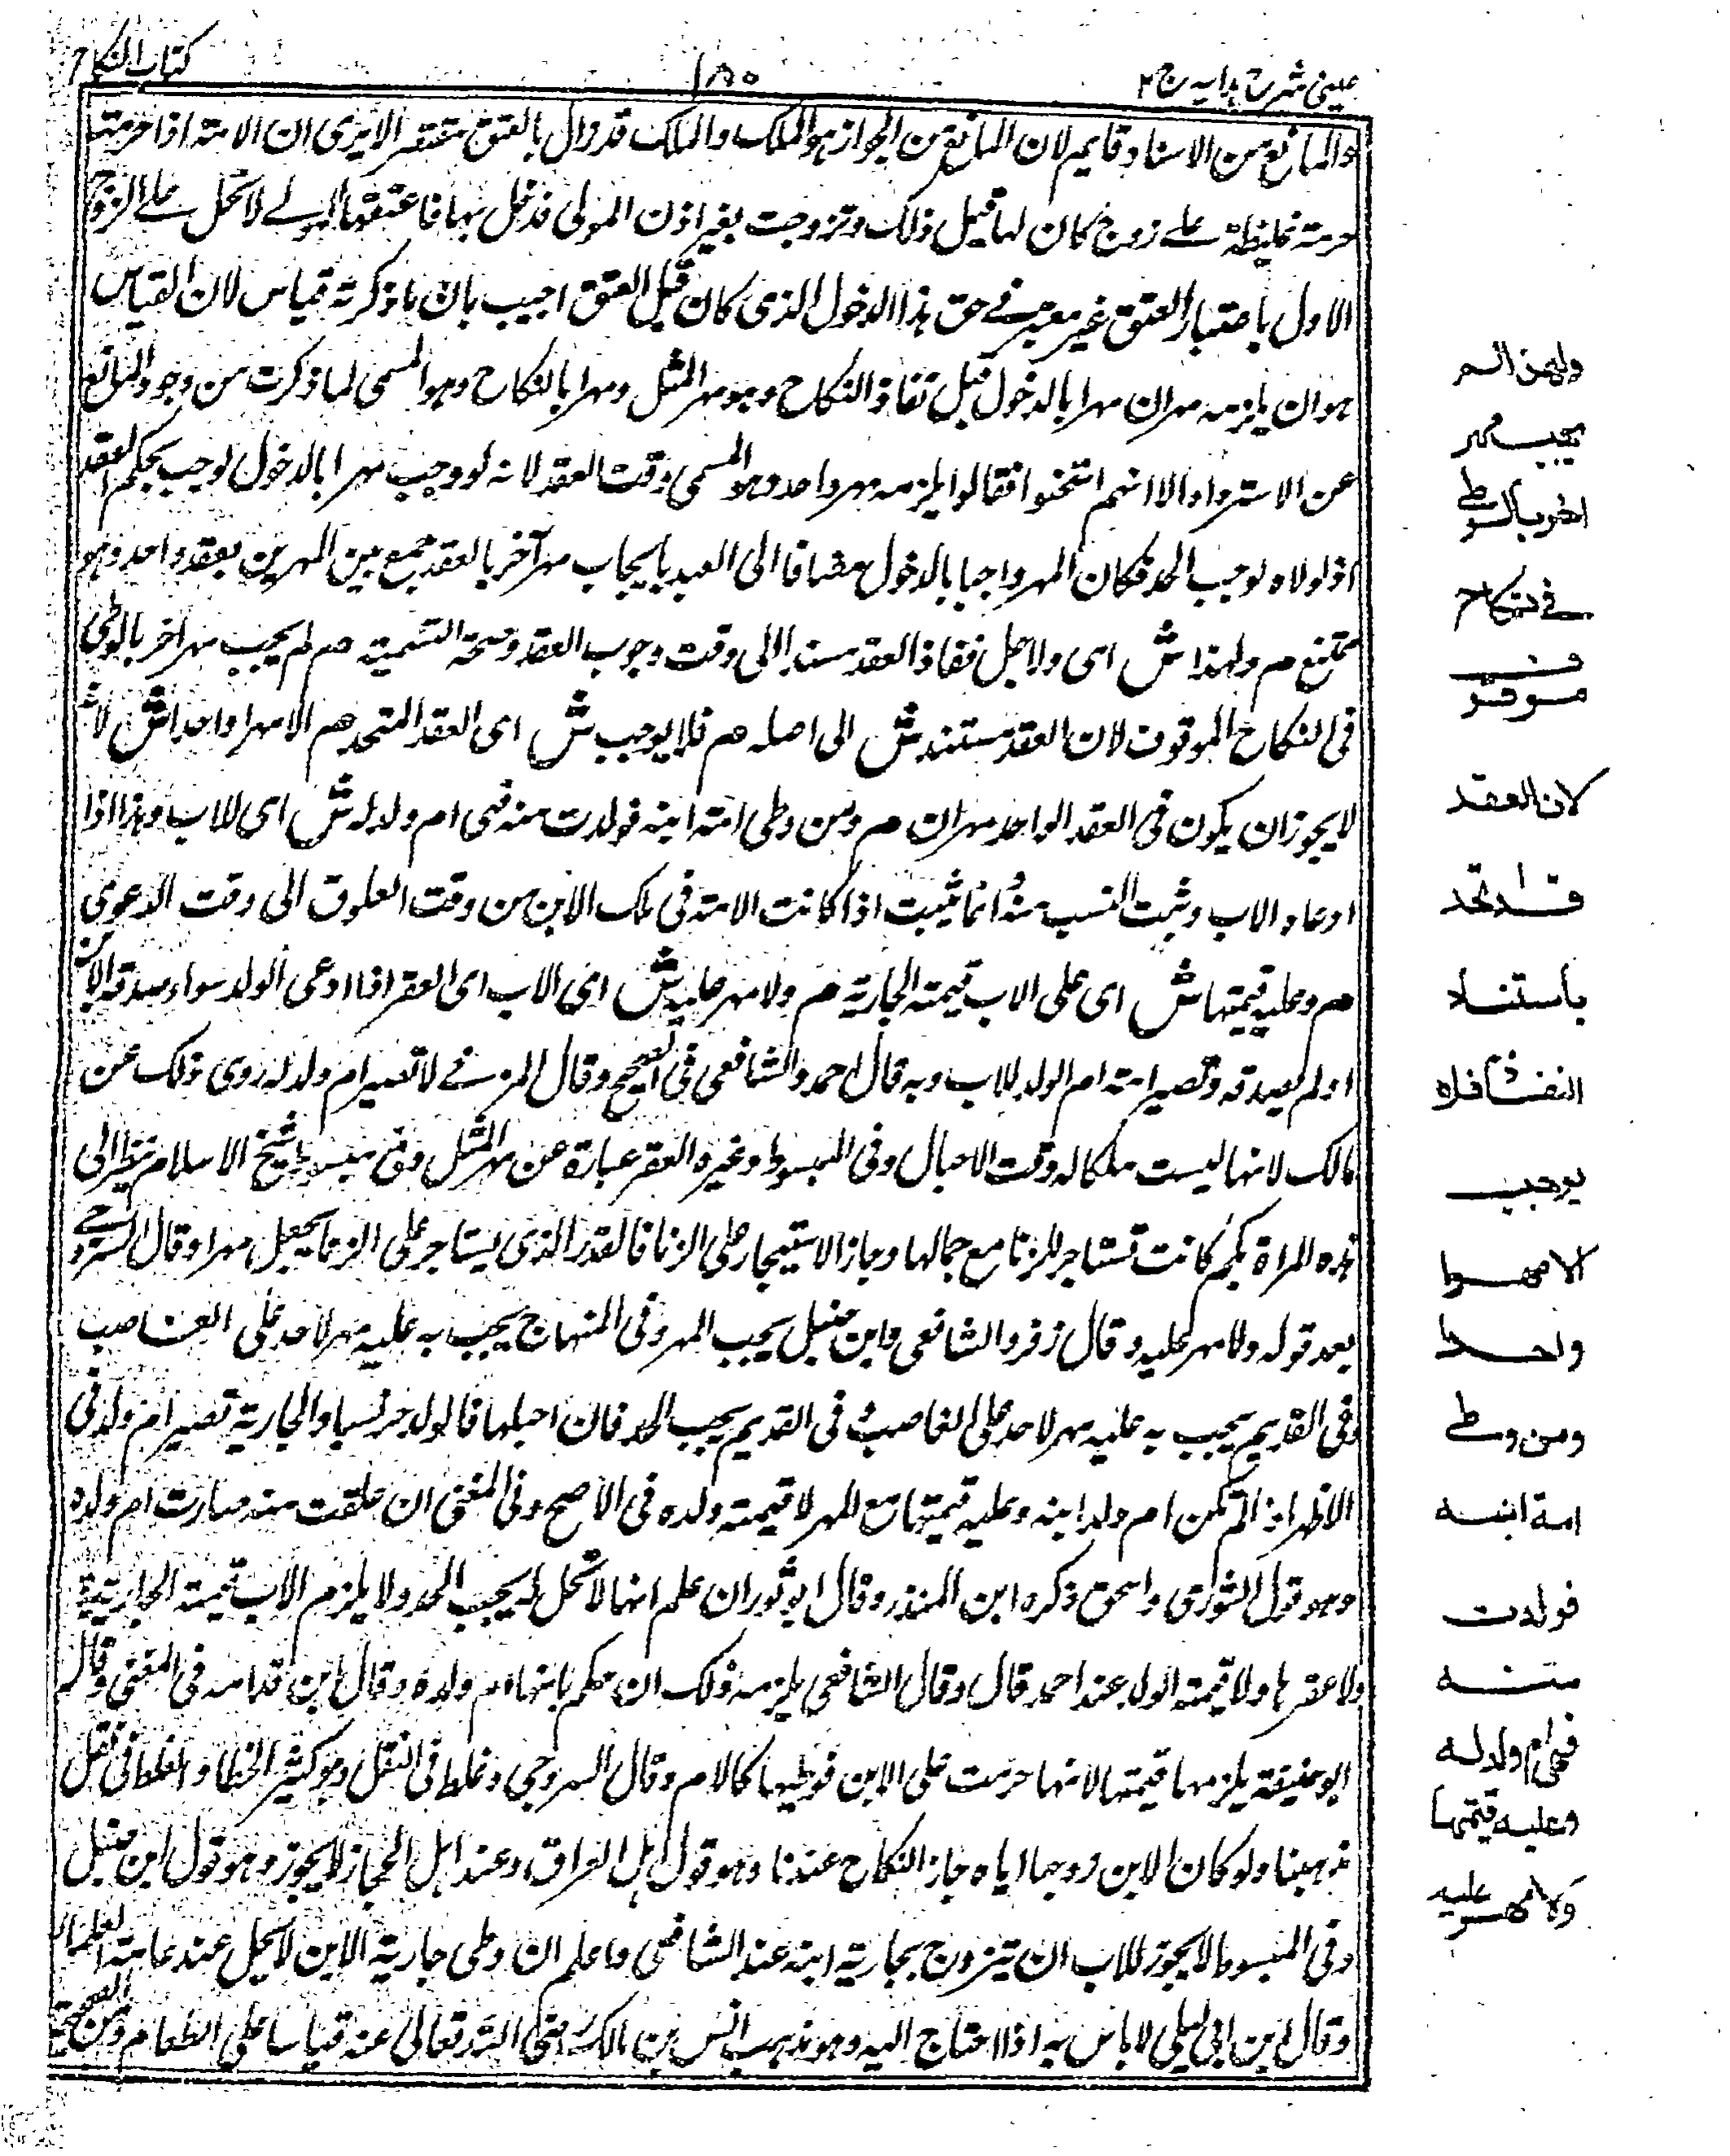 عینی شرح ہدایہ ج ۲
۱۸۰
کتاب النکاح
والمانع من الاسناد قایم لان المانع من الجواز ہو الملک والملک قد زال بالعتق مقتصر الایری ان الامۃ اذا حرمت
حرمۃ غلیظۃ علے زوج کان لہا قبل ذلک وتزوجت بغیر اذن المولی فدخل بہا فاعتقہا المولے لا تحل علے الزوج
الاول باعتبار العتق غیر معتبر فے حق ہذا الدخول الذی کان قبل العتق اجیب بان ما ذکرتہ قیاس لان القیاس
ہو ان یلزمہ مہران مہرا بالدخول قبل نفاذ النکاح وہو مہر المثل ومہرا بالنکاح وہو المسمی لما ذکرت من وجود المانع
عن الاستناد الا انہم استحنوا فقالوا یلزمہ مہر واحد وہو المسمی وقت العقد لانہ لو وجب مہرا بالدخول لوجب بحکم العقد
اذ لولاہ لوجب الحد فکان المہر واجبا بالدخول مضافا الی العبد بایجاب مہر آخر بالعقد جمع بین المہرین بعقد واحد وہو
ممتنع م ولہذا ش ای ولاجل نفاذ العقد مسندا الی وقت وجوب العقد وصحۃ التسمیۃ م لم یجب مہر اخر بالوطی
فی النکاح الموقوف لان العقد مستند ش الی اصلہ م فلا یوجب ش ای العقد المتحد م الا مہرا واحدا ش لانہ
لا یجوز ان یکون فی العقد الواحد مہران م ومن وطی امۃ ابنہ فولدت منہ فہی ام ولد لہ ش ای للاب وہذا اذا
ادعاہ الاب وثبت النسب منہ انما یثبت اذا کانت الامۃ فی ملک الابن من وقت العلوق الی وقت الدعوی
م وعلیہ قیمتہا ش ای علی الاب قیمۃ الجاریۃ م ولا مہر علیہ ش ای الاب ای العقر اذا ادعی الولد سواء صدقہ الابن
او لم یصدقہ وتصیر امتہ ام الولد للاب وبہ قال احمد والشافعی فی الصحیح وقال المزنے لا تصیر ام ولد لہ روی ذلک عن
مالک لانہا لیست ملکا لہ وقت الاحبال وفی المبسوط وغیرہ العقر عبارۃ عن مہر المثل وفی مبسوط شیخ الاسلام ینظر الی
ہذہ المراۃ بکم کانت تستاجر للزنا مع جمالہا وجاز الاستیجار علی الزنا فالقدر الذی یستاجر علی الزنا یجعل مہرا وقال السروجے
بعد قولہ ولا مہر علیہ وقال زفر والشافعی وابن حنبل یجب المہر وفی المنہاج یجب بہ علیہ مہر لا حد علی الغاصب
وفی القدیم یجب بہ علیہ مہر لا حد علی الغاصب وفی القدیم یجب الحد فان احبلہا فالولد حر نسیبا والجاریۃ تصیر ام ولد فی
الاظہر اذا لم تکن ام ولد ابنہ وعلیہ قیمتہا مع المہر لا قیمۃ ولدہ فی الاصح وفی المغنی ان علقت منہ صارت ام ولدہ
وہو قول الثوری واسحق ذکرہ ابن المنذر وقال ابو ثور ان علم انہا لا تحل لہ یجب الحد ولا یلزم الاب قیمۃ الجاریۃ
ولا عقرہا ولا قیمۃ الولد عند احمد قال وقال الشافعی یلزمہ ذلک ان حکم بانہا ام ولدہ وقال ابن قدامۃ فی المغنی وقال
ابو حنیفۃ یلزمہا قیمتہا لانہا حرمت علی الابن فوطیہا کالام وقال السروجی وغلط فی النقل وہو کثیر الخطا والغلط فی نقل
مذہبنا ولو کان الابن زوجہا ایاہ جاز النکاح عندنا وہو قول اہل العراق وعند اہل الحجاز لا یجوز وہو قول ابن حنبل
وفی المبسوط لا یجوز للاب ان یتزوج بجاریۃ ابنہ عند الشافعی واعلم ان وطی جاریۃ الابن لا یحل عند عامۃ العلماء
وقال ابن ابی لیلی لا باس بہ اذا احتاج الیہ وہو مذہب انس بن مالک رضی اللہ تعالی عنہ قیاسا علی الطعام
ولهذا لم
یجب مهر
اخر بالوطے
فے نکاح
موقوف
لان العقد
قد اتحد
باستناد
النفاذ فلا
یوجب
الا مهرا
واحدا
ومن وطے
امة ابنه
فولدت
منه
فهی ام ولد له
وعلیه قیمتها
ولا مهر علیه